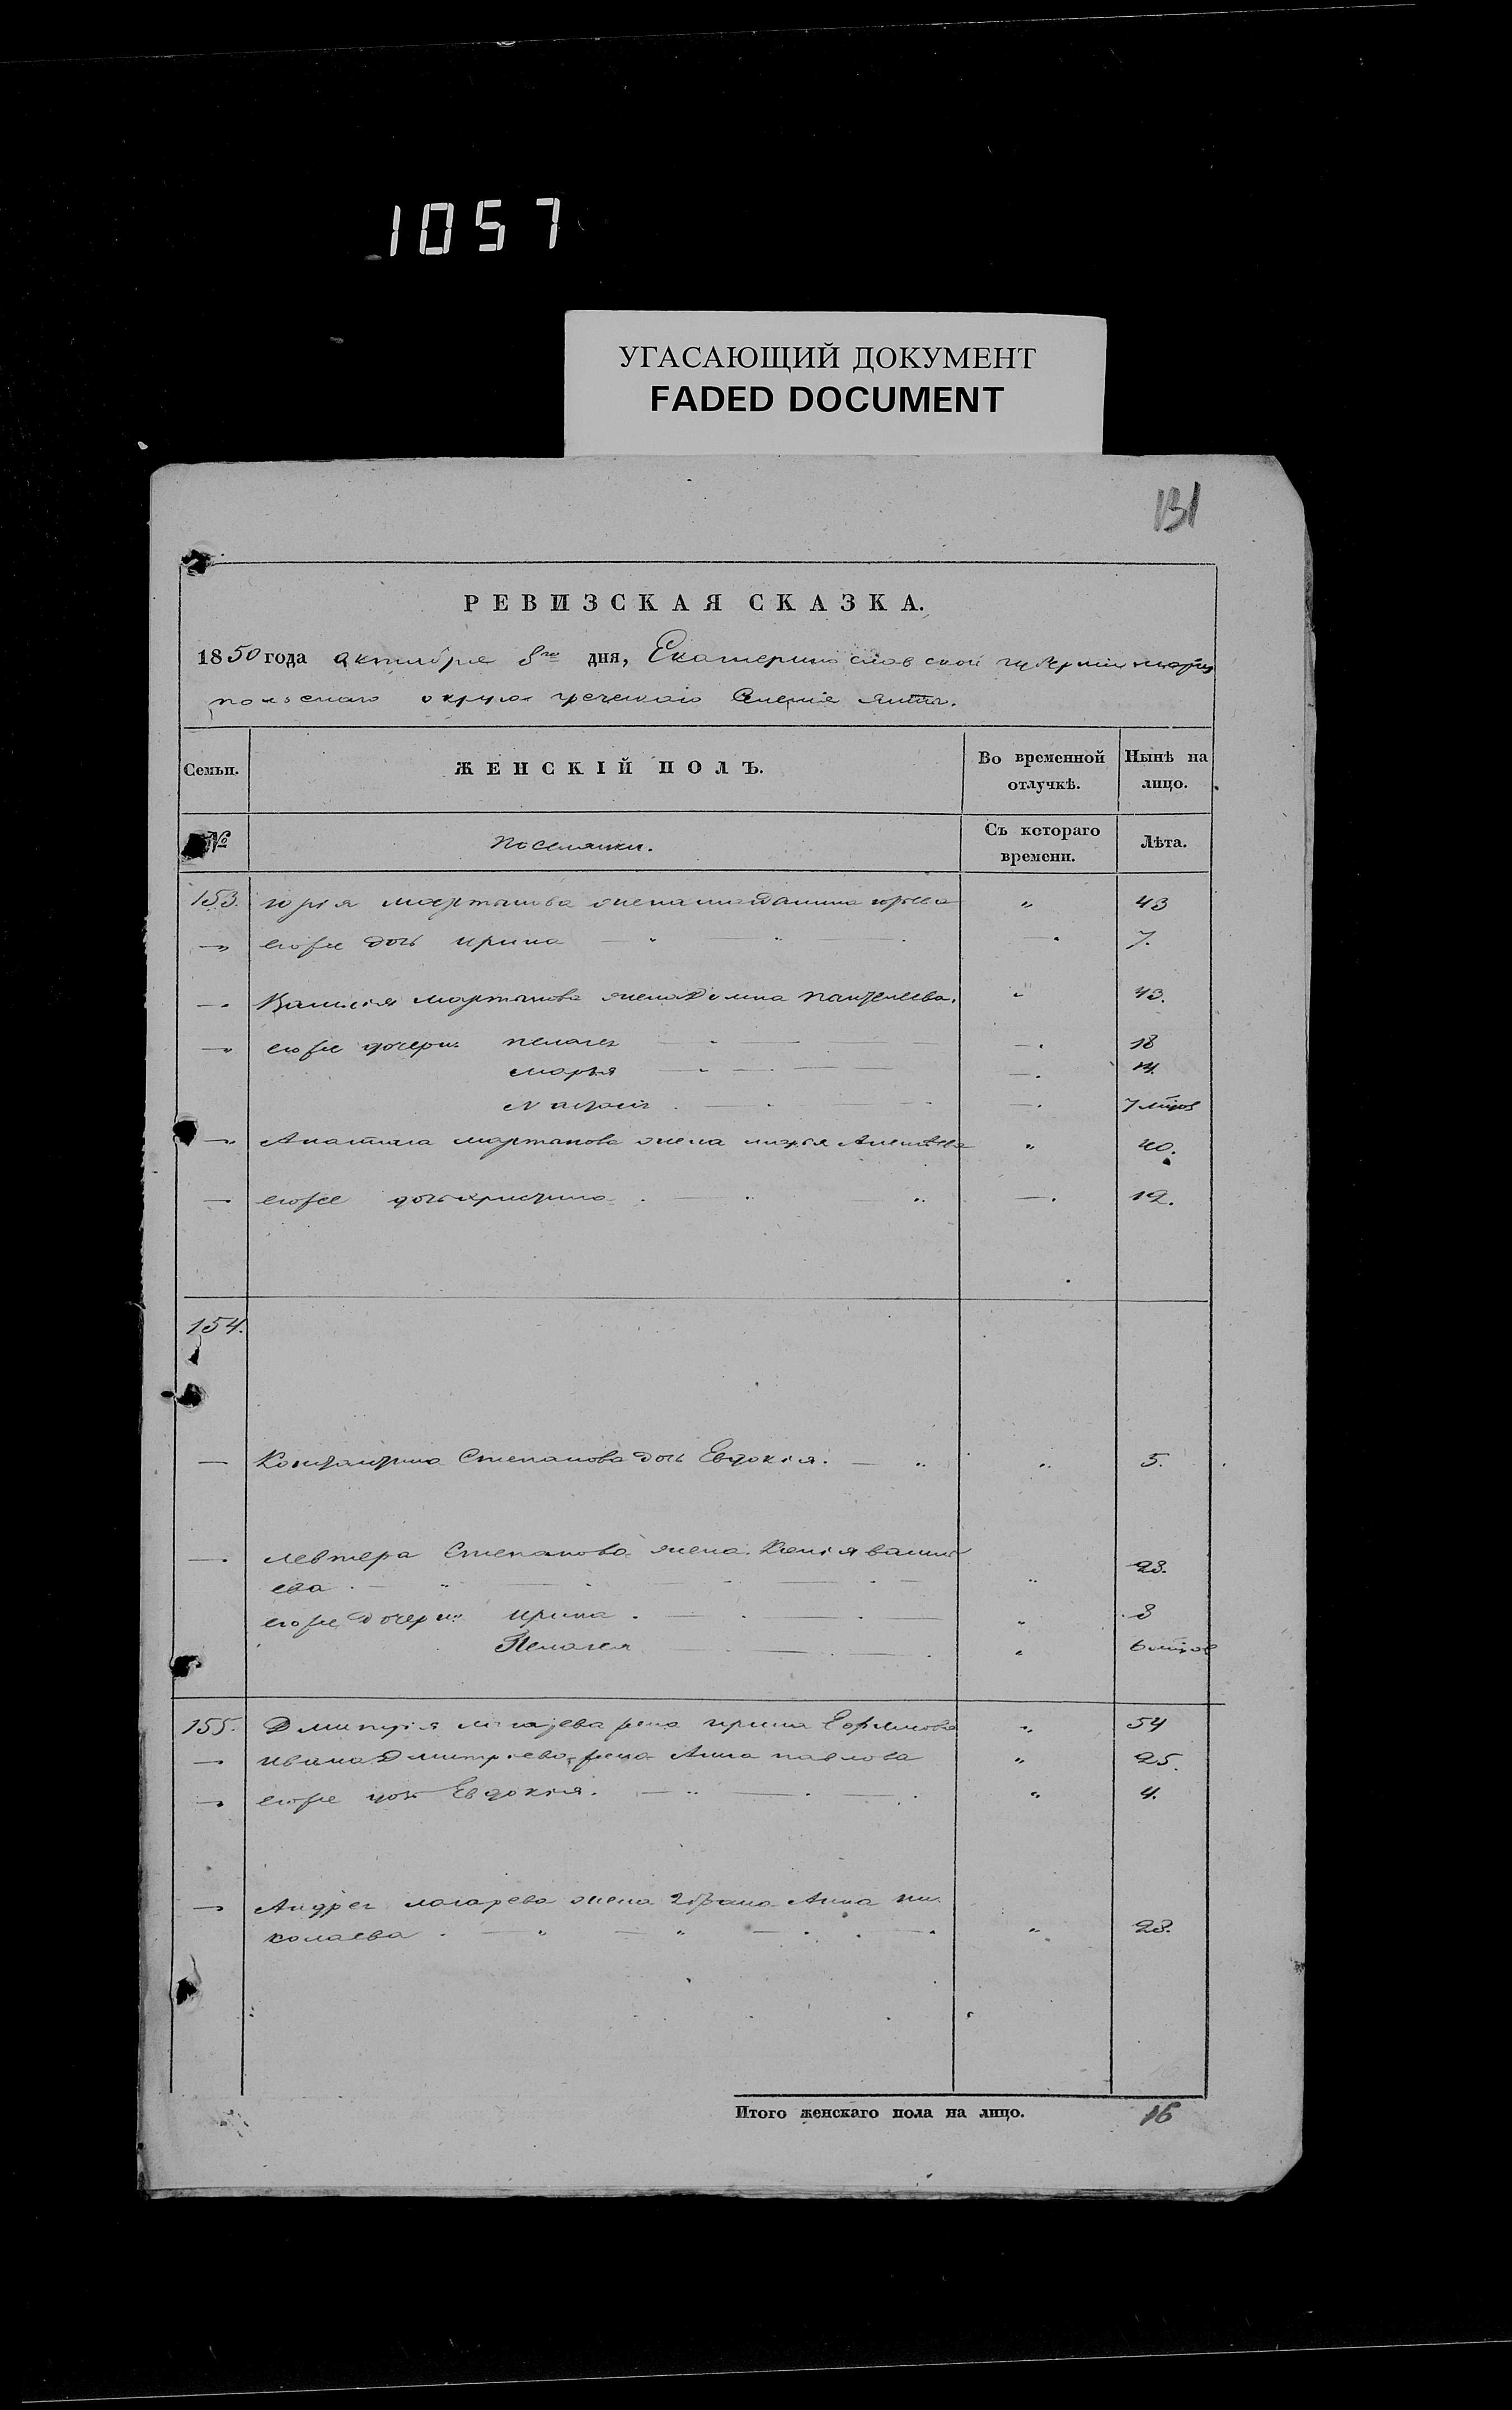 1057
УГАСАЮЩИЙ ДОКУМЕНТ
FADED DOCUMENT
131
РЕВИЗСКАЯ СКАЗКА.
1850 года октября 8го дня, Екатеринославской губернии мариу
польскаго округа греческаго Селенія Ялты.
Семьи.
ЖЕНСКІЙ ПОЛЪ.
Во временной отлучкѣ.
Нынѣ на лицо.
№
Поселянки.
Съ котораго времени.
Лѣта.
153. юрія мартынова жена юрьева " 43
— его же дочь ирина — . 7.
— Василія мартынова жена Домна пантелеева. " 43.
— его же дочери пелагея — . 18
марья — . 14.
— . 7 мцов
— мартынова жена " 40.
— его же дочь христина — . 12.
154.
— Константина Степанова дочь Евдокія. — " " 5.
— левтера Степанова жена Василь
ева . — " 23.
его же дочери ирина . — " 3
Пелагея " 6 мцов
155. Дмитрія лазарева жена ирина Ефремова " 54
— ивана Дмитріева жена Анна павлова " 25.
— его же дочь Евдокія. — " 4.
— Андрея лазарева жена 2 брака Анна ни
колаева . — " 23.
Итого женскаго пола на лицо. 16